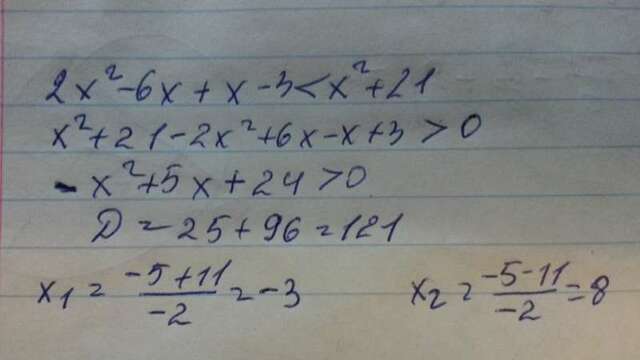 2x²-6x+x-3<x²+21
x²+21-2x²+6x-x+3>0
-x²+5x+24>0
D=25+96=121
x₁=(-5+11)/(-2)=-3 x₂=(-5-11)/(-2)=8